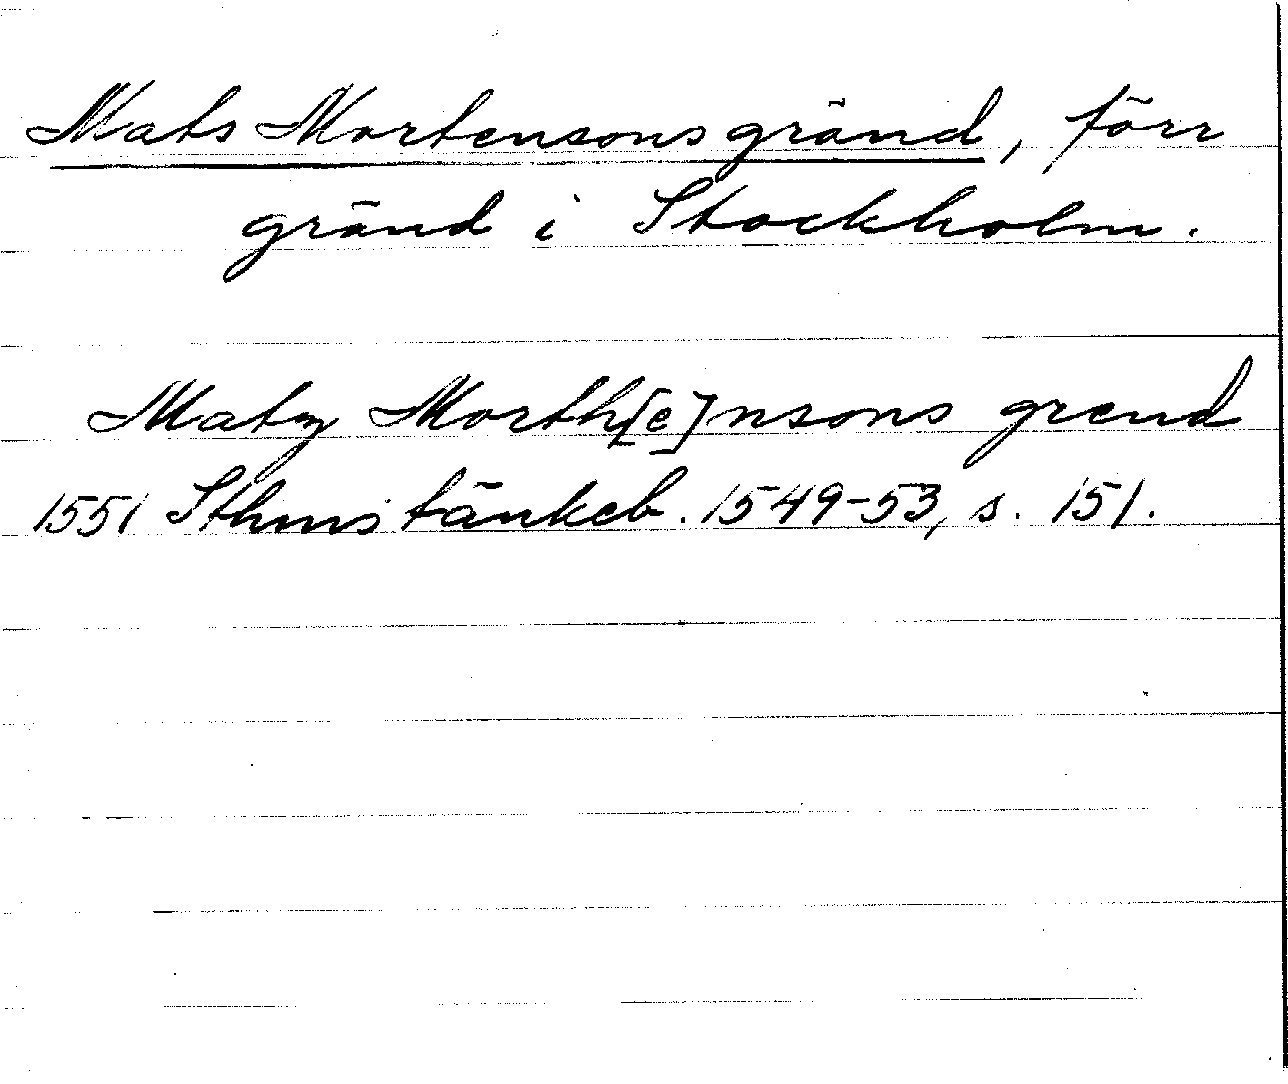 Mats Mortensons gränd, förr
gränd i Stockholm.
Matz Morth[e]nsons grend
1551 Sthms tänkeb. 1549-53, s. 151.